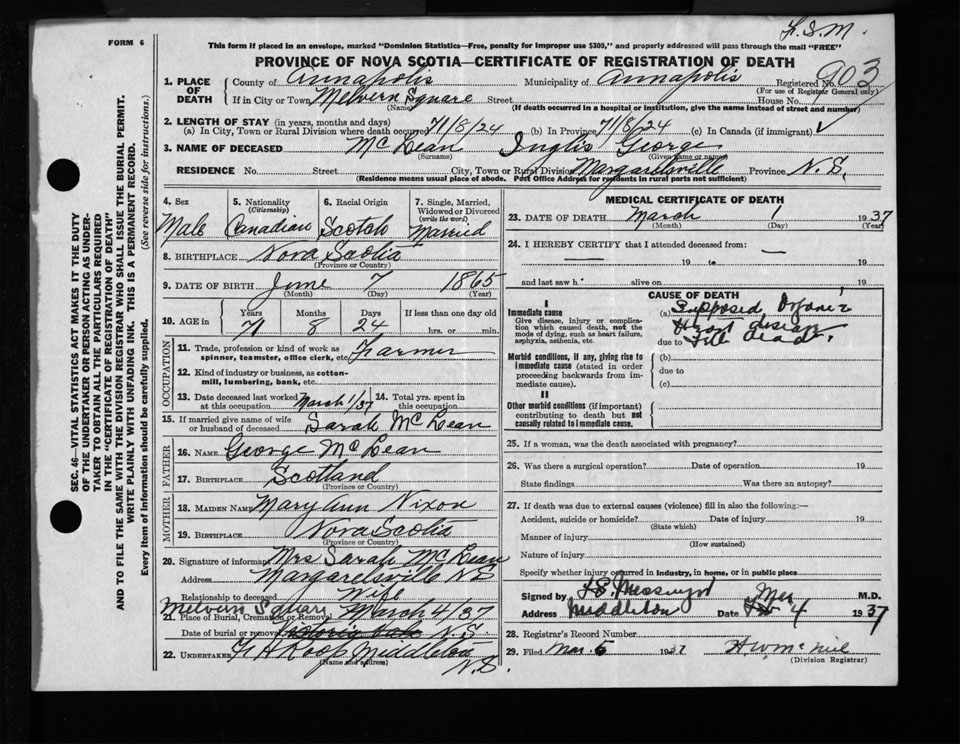 F. S. M.
FORM 6
This form if placed in an envelope, marked "Dominion Statistics—Free, penalty for improper use $300," and properly addressed will pass through the mail "FREE"
PROVINCE OF NOVA SCOTIA—CERTIFICATE OF REGISTRATION OF DEATH
1. PLACE OF DEATH County of Annapolis Municipality of Annapolis Registered No. 903
(For use of Registrar General only)
If in City or Town Melvern Square Street House No.
(Name) (If death occurred in a hospital or institution, give the name instead of street and number)
2. LENGTH OF STAY (in years, months and days)
(a) In City, Town or Rural Division where death occurred 71/8/24 (b) In Province 71/8/24 (c) In Canada (if immigrant) ✓
3. NAME OF DECEASED McLean Inglis George
(Surname) (Given name or names)
RESIDENCE No. Street City, Town or Rural Division Margaretsville Province N.S.
(Residence means usual place of abode. Post Office Address for residents in rural parts not sufficient)
4. Sex Male
5. Nationality (Citizenship) Canadian
6. Racial Origin Scotch
7. Single, Married, Widowed or Divorced (write the word) Married
8. BIRTHPLACE Nova Scotia
(Province or Country)
9. DATE OF BIRTH June 7 1865
(Month) (Day) (Year)
10. AGE in Years 71 Months 8 Days 24 If less than one day hrs. or min.
OCCUPATION
11. Trade, profession or kind of work as spinner, teamster, office clerk, etc. Farmer
12. Kind of industry or business, as cotton-mill, lumbering, bank, etc.
13. Date deceased last worked at this occupation March 1/37
14. Total yrs. spent in this occupation
15. If married give name of wife or husband of deceased Sarah McLean
FATHER
16. NAME George McLean
17. BIRTHPLACE Scotland
(Province or Country)
MOTHER
18. MAIDEN NAME Mary Ann Nixon
19. BIRTHPLACE Nova Scotia
(Province or Country)
20. Signature of informant Mrs Sarah McLean
Address Margaretsville N S
Relationship to deceased Wife
Melvern Square March 4/37
21. Place of Burial, Cremation or Removal
Date of burial or removal Victoria Vale N.S.
22. UNDERTAKER Middleton N.S.
(Name and address)
MEDICAL CERTIFICATE OF DEATH
23. DATE OF DEATH March 1 1937
(Month) (Day) (Year)
24. I HEREBY CERTIFY that I attended deceased from
19 to 19
and last saw h alive on 19
CAUSE OF DEATH
I
Immediate cause
Give disease, injury or complication which caused death, not the mode of dying, such as heart failure, asphyxia, asthenia, etc.
(a) Supposed Organic
Heart disease
due to Fell dead.
Morbid conditions, if any, giving rise to immediate cause (stated in order proceeding backwards from immediate cause).
(b)
due to
(c)
II
Other morbid conditions (if important) contributing to death but not causally related to immediate cause.
25. If a woman, was the death associated with pregnancy?
26. Was there a surgical operation? Date of operation 19
State findings Was there an autopsy?
27. If death was due to external causes (violence) fill in also the following:—
Accident, suicide or homicide? Date of injury 19
(State which)
Manner of injury
(How sustained)
Nature of injury
Specify whether injury occurred in industry, in home, or in public place
Signed by M.D.
Address Middleton Date Mar 4 1937
28. Registrar's Record Number
29. Filed Mar. 5 1937 H W McNeil
(Division Registrar)
SEC. 46—VITAL STATISTICS ACT MAKES IT THE DUTY
OF THE UNDERTAKER OR PERSON ACTING AS UNDERTAKER
TO OBTAIN ALL THE PARTICULARS REQUIRED
IN THE "CERTIFICATE OF REGISTRATION OF DEATH"
AND TO FILE THE SAME WITH THE DIVISION REGISTRAR WHO SHALL ISSUE THE BURIAL PERMIT.
WRITE PLAINLY WITH UNFADING INK. THIS IS A PERMANENT RECORD.
Every item of information should be carefully supplied. (See reverse side for instructions.)